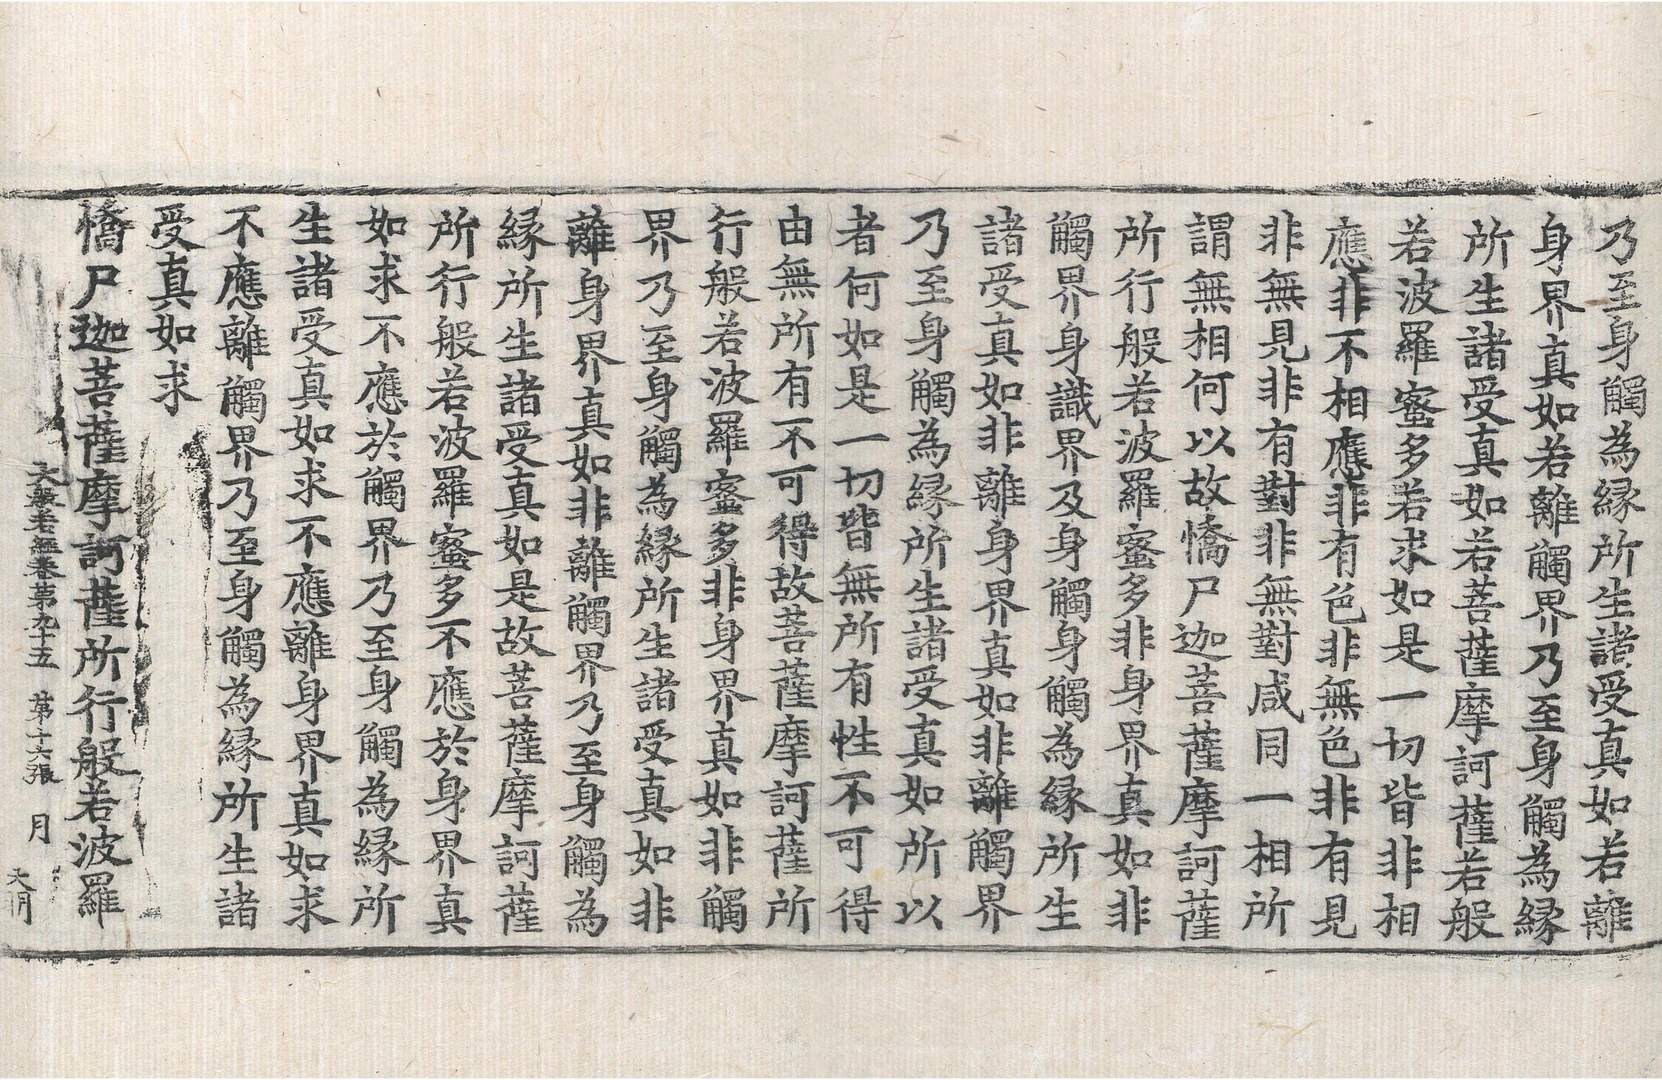 乃至身觸為縁所生諸受真如若離
身界真如若離觸界乃至身觸為縁
所生諸受真如若菩薩摩訶薩若般
若波羅蜜多若求如是一切皆非相
應非不相應非有色非無色非有見
非無見非有對非無對咸同一相所
謂無相何以故憍尸迦菩薩摩訶薩
所行般若波羅蜜多非身界真如非
觸界身識界及身觸身觸為縁所生
諸受真如非離身界真如非離觸界
乃至身觸為縁所生諸受真如所以
者何如是一切皆無所有性不可得
由無所有不可得故菩薩摩訶薩所
行般若波羅蜜多非身界真如非觸
界乃至身觸為縁所生諸受真如非
離身界真如非離觸界乃至身觸為
縁所生諸受真如是故菩薩摩訶薩
所行般若波羅蜜多不應於身界真
如求不應於觸界乃至身觸為縁所
生諸受真如求不應離身界真如求
不應離觸界乃至身觸為縁所生諸
受真如求
憍尸迦菩薩摩訶薩所行般若波羅
大般若經卷第九十五 第十六張 月